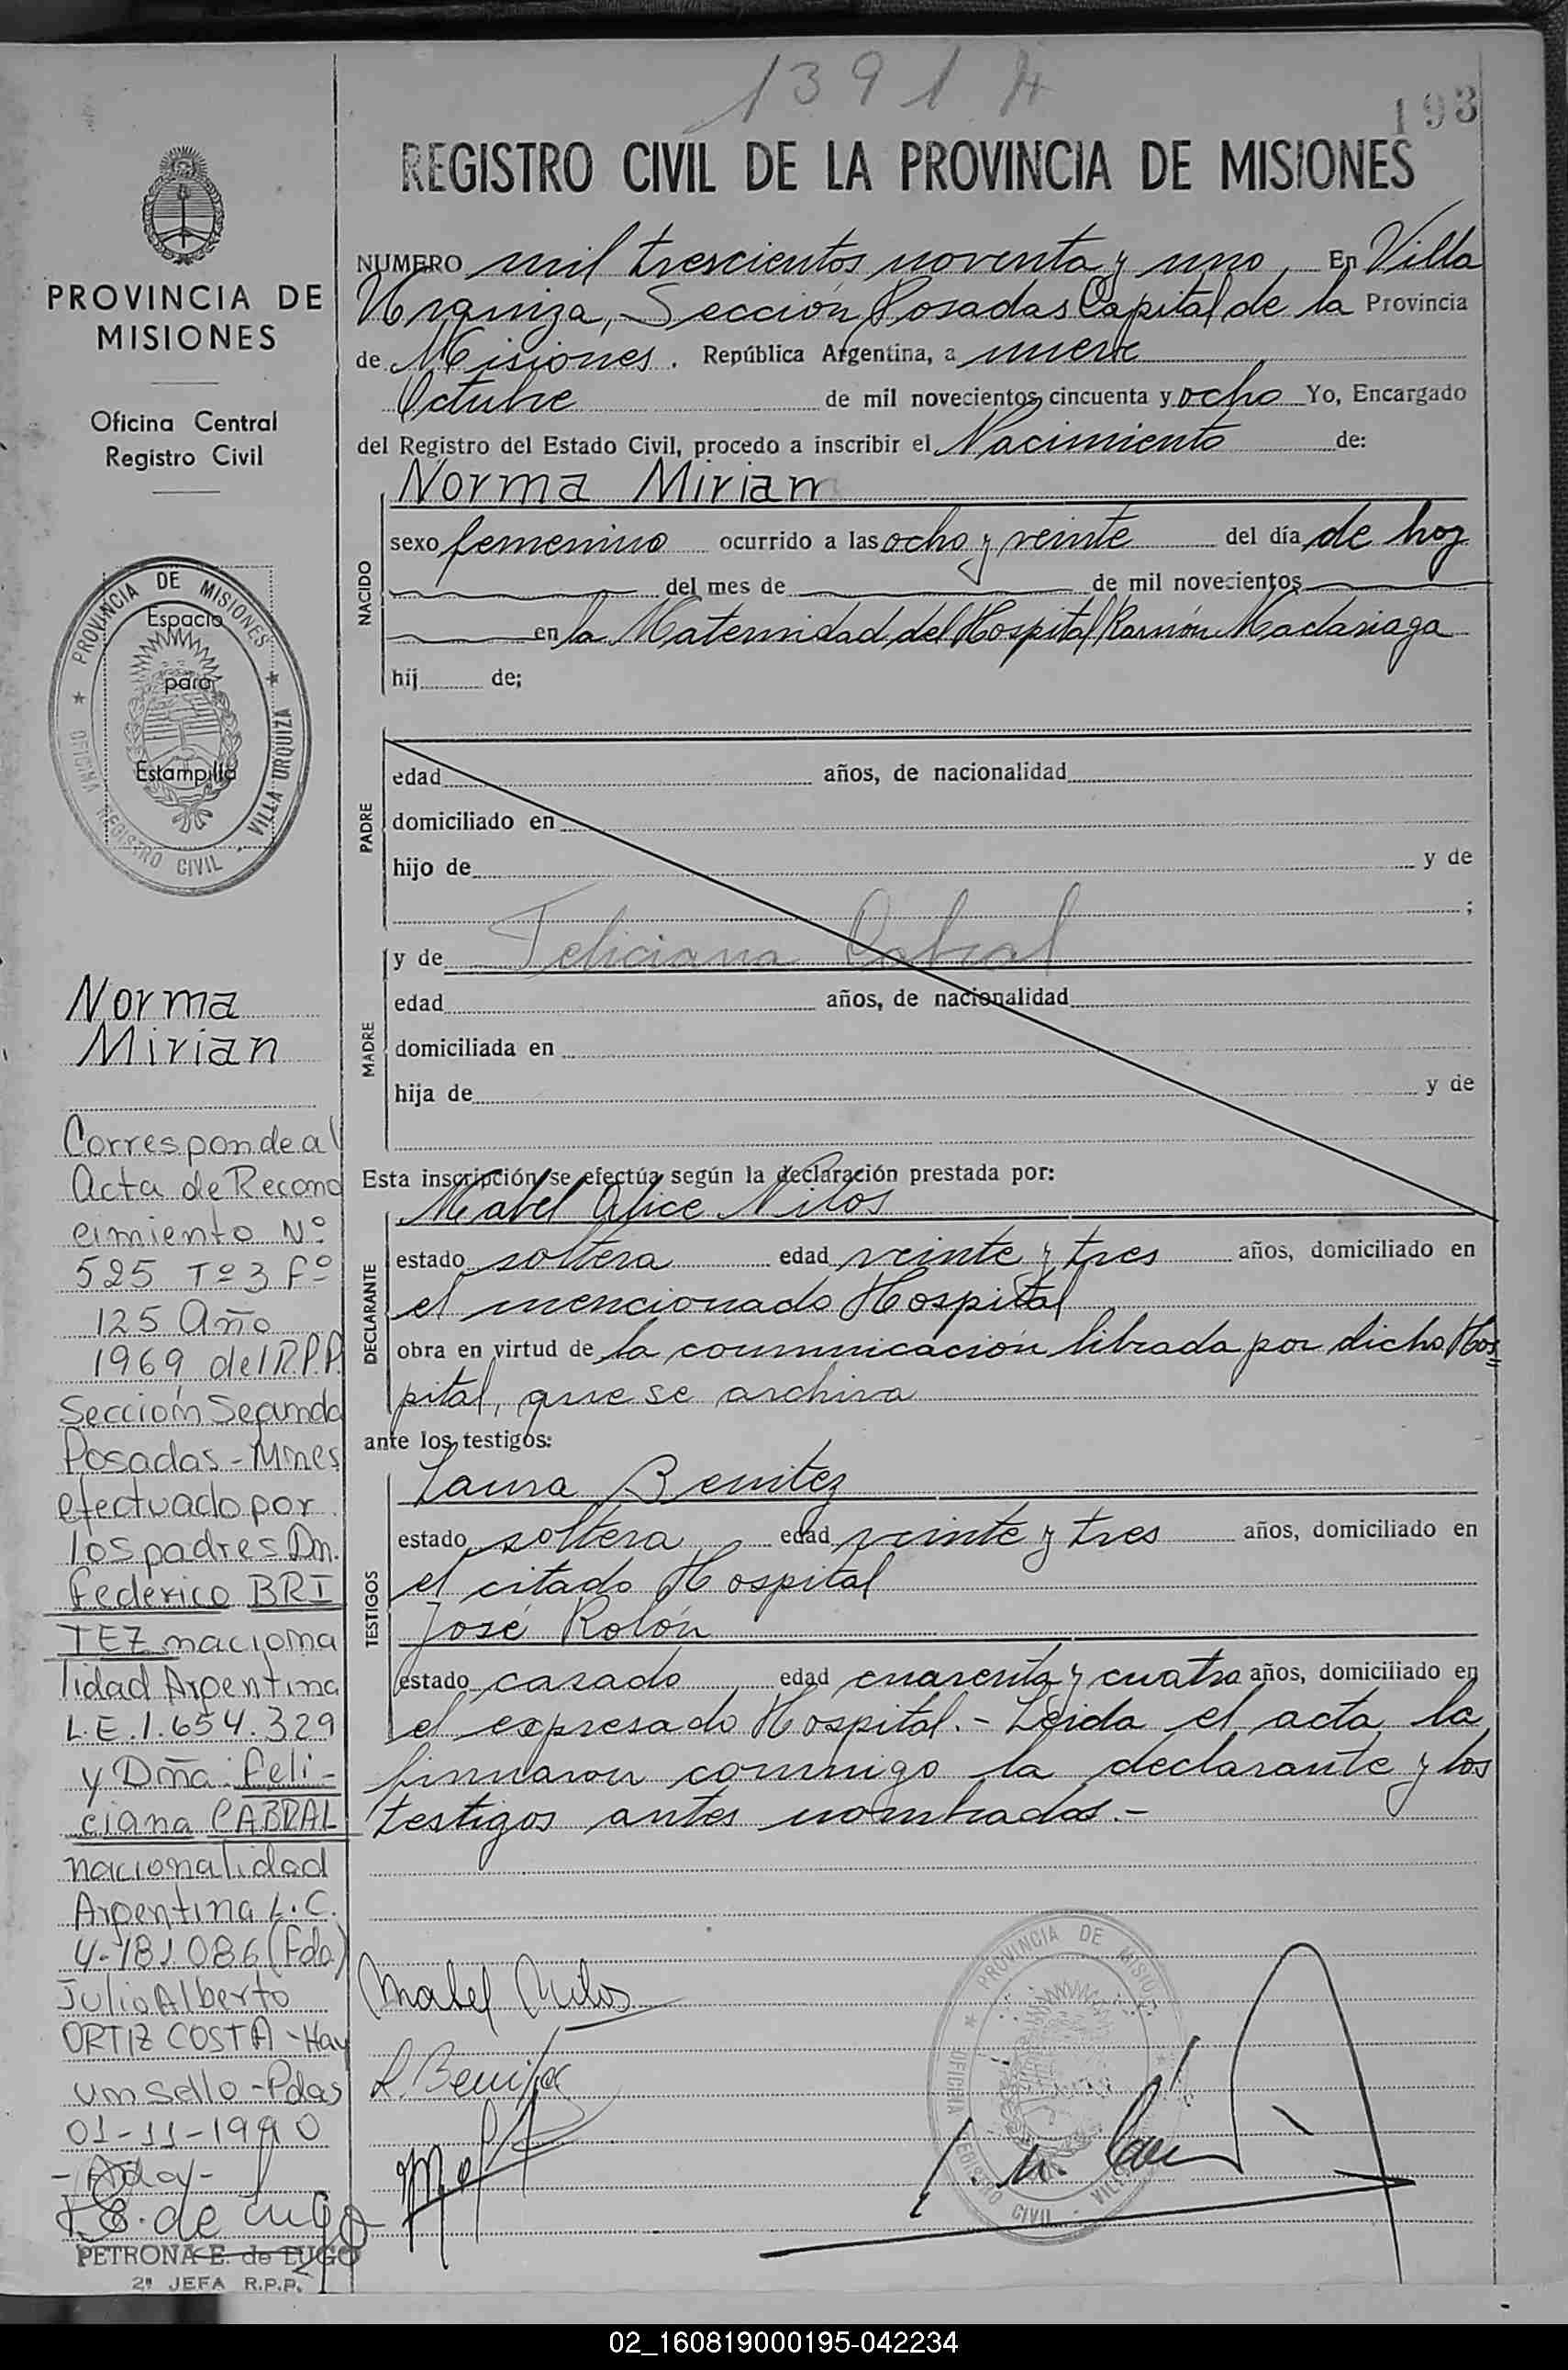 1391
193
REGISTRO CIVIL DE LA PROVINCIA DE MISIONES
PROVINCIA DE
MISIONES
Oficina Central
Registro Civil
PROVINCIA DE MISIONES
OFICINA REGISTRO CIVIL - VILLA URQUIZA
Espacio
para
Estampilla
Norma
Mirian
Corresponde al
Acta de Recono
cimiento Nº
525 Tº 3 Fº
125 Año
1969 del R.P.P.
Sección Segunda
Posadas - Mnes
efectuado por
los padres Dn.
Federico BRI
TEZ naciona
lidad Argentina
L.E. 1.654.329
y Dña. Feli-
ciana CABRAL
nacionalidad
Argentina L.C.
4.181.086 (Fdo)
Julio Alberto
ORTIZ COSTA - Hay
un sello - Pdas
01-11-1990
PETRONA E. de LUGO
2ª JEFA R.P.P.
NUMERO mil trescientos noventa y uno, En Villa
Urquiza, Sección Posadas Capital de la Provincia
de Misiones. República Argentina, a nueve
Octubre de mil novecientos cincuenta y ocho Yo, Encargado
del Registro del Estado Civil, procedo a inscribir el Nacimiento de:
Norma Mirian
NACIDO
sexo femenino ocurrido a las ocho y veinte del día de hoy
del mes de de mil novecientos
en la Maternidad del Hospital Ramón Madariaga
hij de;
PADRE
edad años, de nacionalidad
domiciliado en
hijo de y de
;
MADRE
y de Feliciana Cabral
edad años, de nacionalidad
domiciliada en
hija de y de
Esta inscripción se efectúa según la declaración prestada por:
DECLARANTE
Mabel Alice Nilos
estado soltera edad veinte y tres años, domiciliado en
el mencionado Hospital
obra en virtud de la comunicación librada por dicho Hos
pital, que se archiva
ante los testigos:
TESTIGOS
Laura Benitez
estado soltera edad veinte y tres años, domiciliado en
el citado Hospital
José Rolón
estado casado edad cuarenta y cuatro años, domiciliado en
el expresado Hospital.- Leida el acta la
firmaron conmigo la declarante y los
testigos antes nombrados.-
Mabel Nilos
L. Benitez
PROVINCIA DE MISIONES
OFICINA REGISTRO CIVIL
02_160819000195-042234